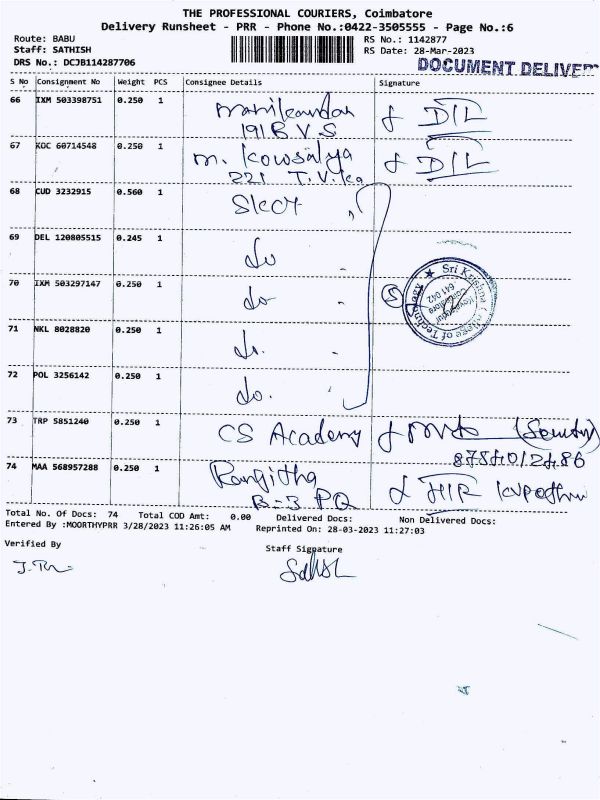 THE PROFESSIONAL COURIERS, Coimbatore
Delivery Runsheet - PRR - Phone No.:0422-3505555 - Page No.:6
Route: BABU RS No.: 1142877
Staff: SATHISH RS Date: 28-Mar-2023
DRS No.: DCJB114287706 DOCUMENT DELIVER
S No Consignment No Weight PCS Consignee Details Signature
66 IXM 503398751 0.250 1 Manikandan
191 B V S
67 KOC 60714548 0.250 1 M. Kowsalya
221 T.V.
68 CUD 3232915 0.560 1 SKCT
69 DEL 120805515 0.245 1 do
70 IXM 503297147 0.250 1 do
Sri Krishna College of Technology
Kovaipudur
Coimbatore
641 042
71 NKL 8028820 0.250 1 do.
72 POL 3256142 0.250 1 do.
73 TRP 5851240 0.250 1 CS Academy
74 MAA 568957288 0.250 1 Rangitha
B-3 PQ
Total No. Of Docs: 74 Total COD Amt: 0.00 Delivered Docs: Non Delivered Docs:
Entered By :MOORTHYPRR 3/28/2023 11:26:05 AM Reprinted On: 28-03-2023 11:27:03
Verified By Staff Signature